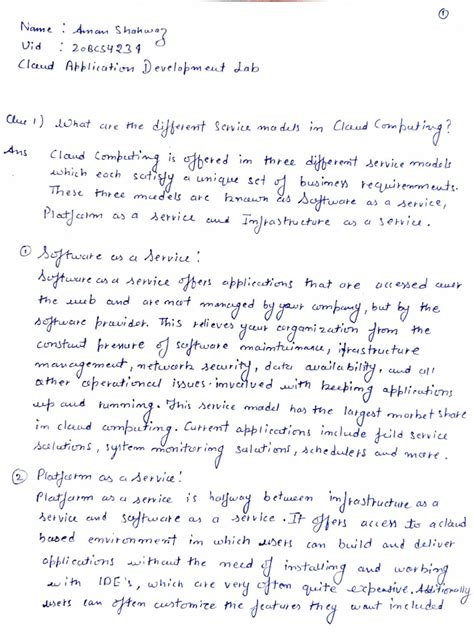 ①
Name : Aman Shahwaz
Uid : 20BCS4234
Cloud Application Development Lab
Que 1) What are the different service models in Cloud Computing?
Ans Cloud Computing is offered in three different service models
which each satisfy a unique set of business requirements.
These three models are known as Software as a service,
Platform as a service and Infrastructure as a service.
① Software as a service:
Software as a service offers applications that are accessed over
the web and are not managed by your company, but by the
software provider. This relieves your organization from the
constant pressure of software maintainance, ifrastructure
management, network security, data availability, and all
other operational issues involved with keeping applications
up and running. This service model has the largest market share
in cloud computing. Current applications include feild service
solutions, system monitoring solutions, schedulers and more.
② Platform as a service:
Platform as a service is halfway between infrastructure as a
service and software as a service. It offers access to a cloud
based environment in which users can build and deliver
applications without the need of installing and working
with IDE's, which are very often quite expensive. Additionally
users can often customize the features they want included